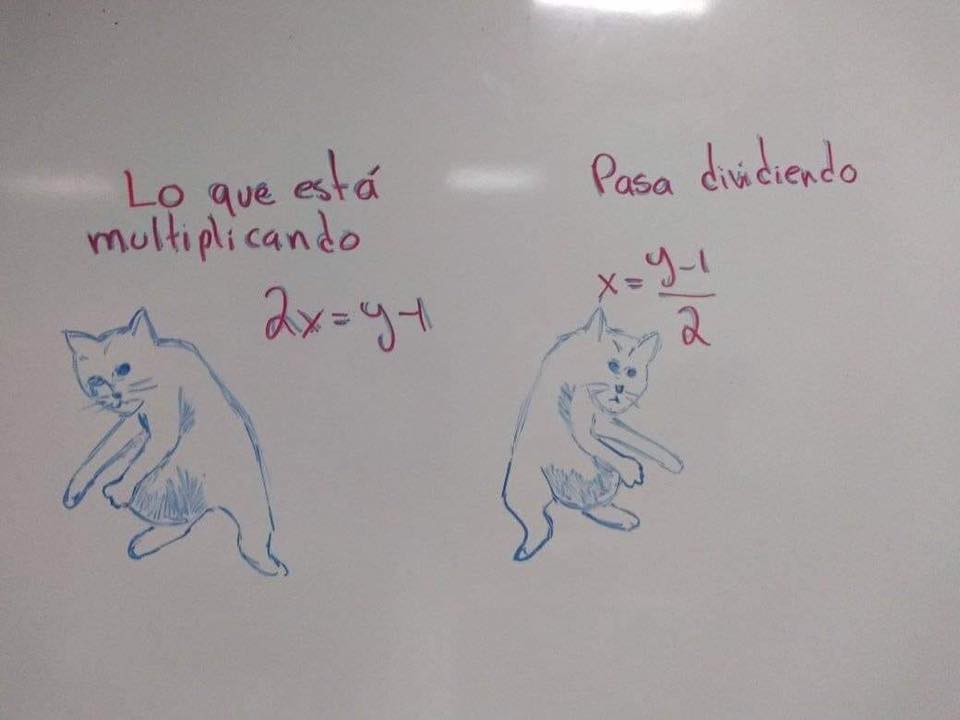 Lo que está
multiplicando
2x=y-1
Pasa dividiendo
x=y-1
2